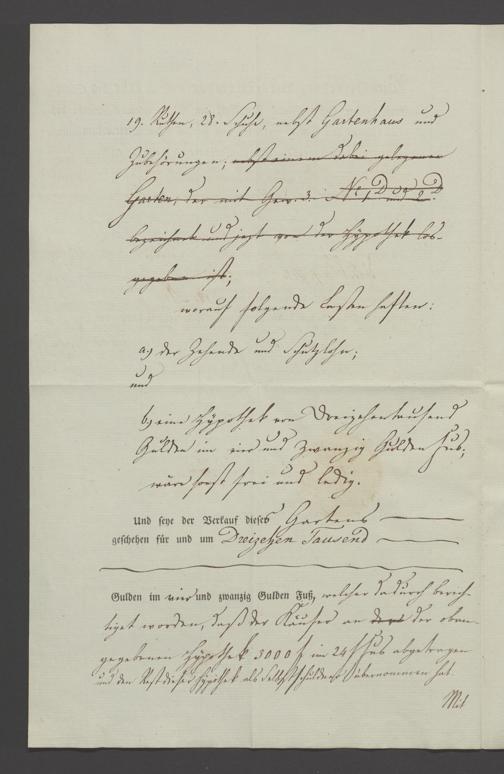 19. Ruthen, 28. Schuhe, nebst Gartenhaus und
Zubehörungen; nebst einem dabei gelegenen
Garten, der mit Gew. 3. No 1 D und 2 D
bezeichnet und jezt von der Hypothek los-
gegeben ist;
worauf folgende Lasten haften:
a.) der Zehende und Schutzlohn;
und
b) eine Hypothek von Dreizehentausend
Gulden im vier und zwanzig Gulden Fus,
wäre sonst frei und ledig.
Und seye der Verkauf dieses Gartens
geschehen für und um Dreizehen Tausend
Gulden im vier und zwanzig Gulden Fuß, welcher dadurch berich-
tiget worden, daß der Käufer an der oben
gegebenen Hypothek 5000 f im 24 f Fus abgetragen
und den Rest dieser Hypothek als Selbstschuldner übernommen hat.
Mit